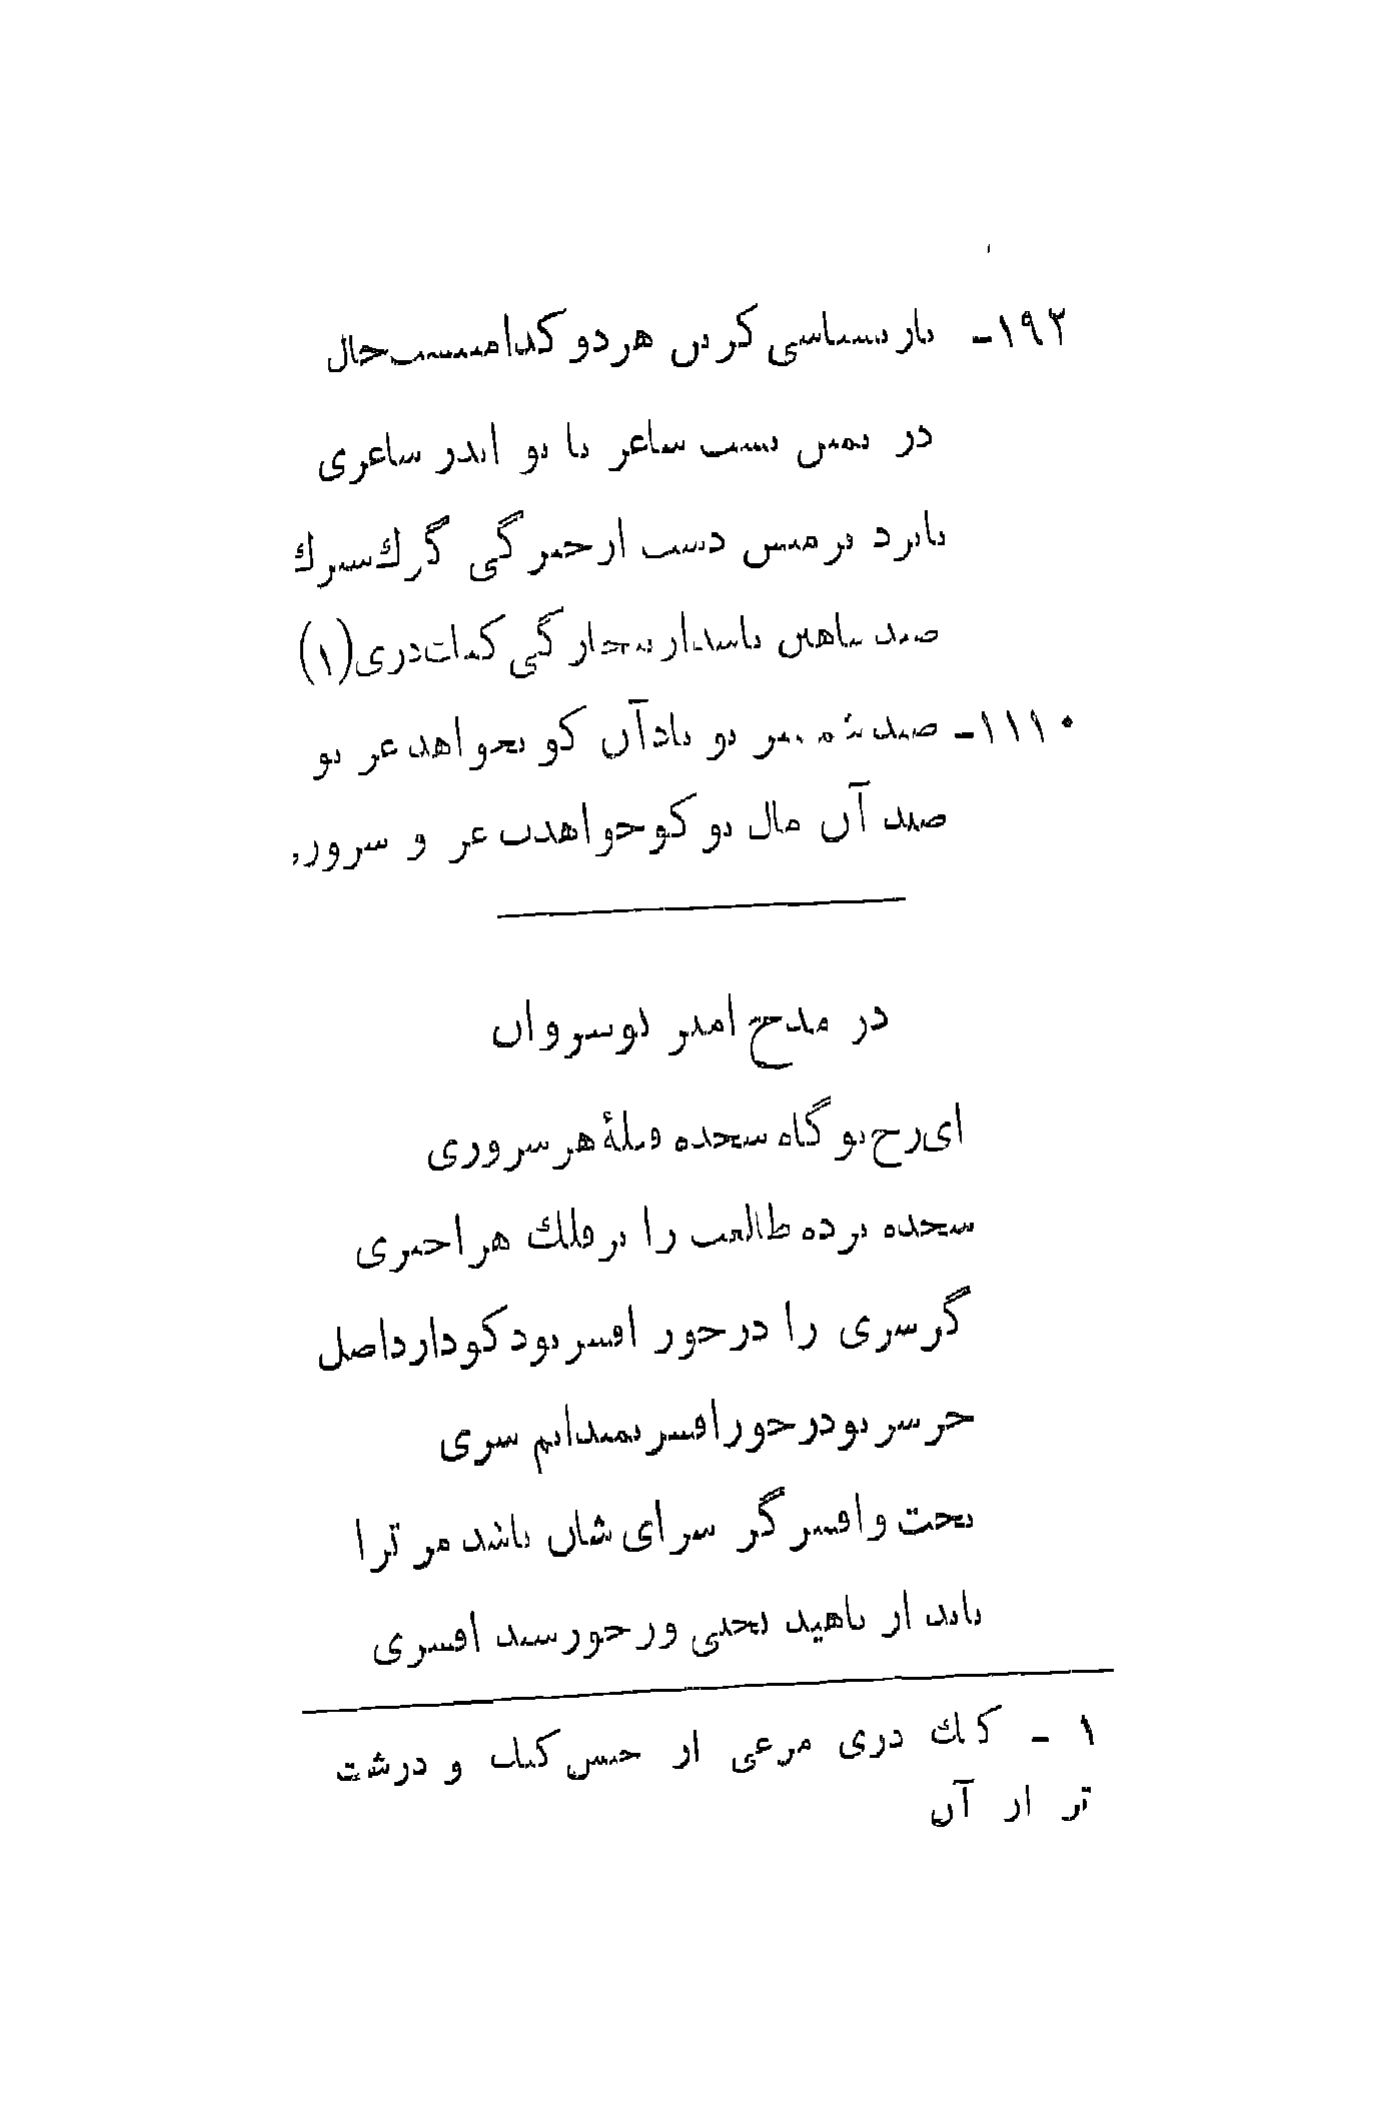 ۱۹۲ـ بازنشناسی کزین هردو کدامست حال
در یمین تست ساغر یا تو اندر ساغری
تا برد بر میش دست از خیرگی گرگ سترگ
صید شاهین باشد از بیچارگی کبک دری (۱)
۱۱۱۰ـ صید شمشیر تو باد آن کو نخواهد عز تو
صید آن مال تو کو خواهدت عز و سروری
در مدح امیر نوشروان
ای رخ تو گاه سجده قبلهٔ هر سروری
سجده برده طالعت را بر فلک هر اختری
گر سری را درخور افسر بود کو دارد اصل
جز سر تو درخور افسر نمیدانم سری
تخت و افسر گر سزای شان باشد مر ترا
باید از ناهید تختی وز خورشید افسری
۱ ـ کبک دری مرغی از جنس کبک و درشت
تر از آن